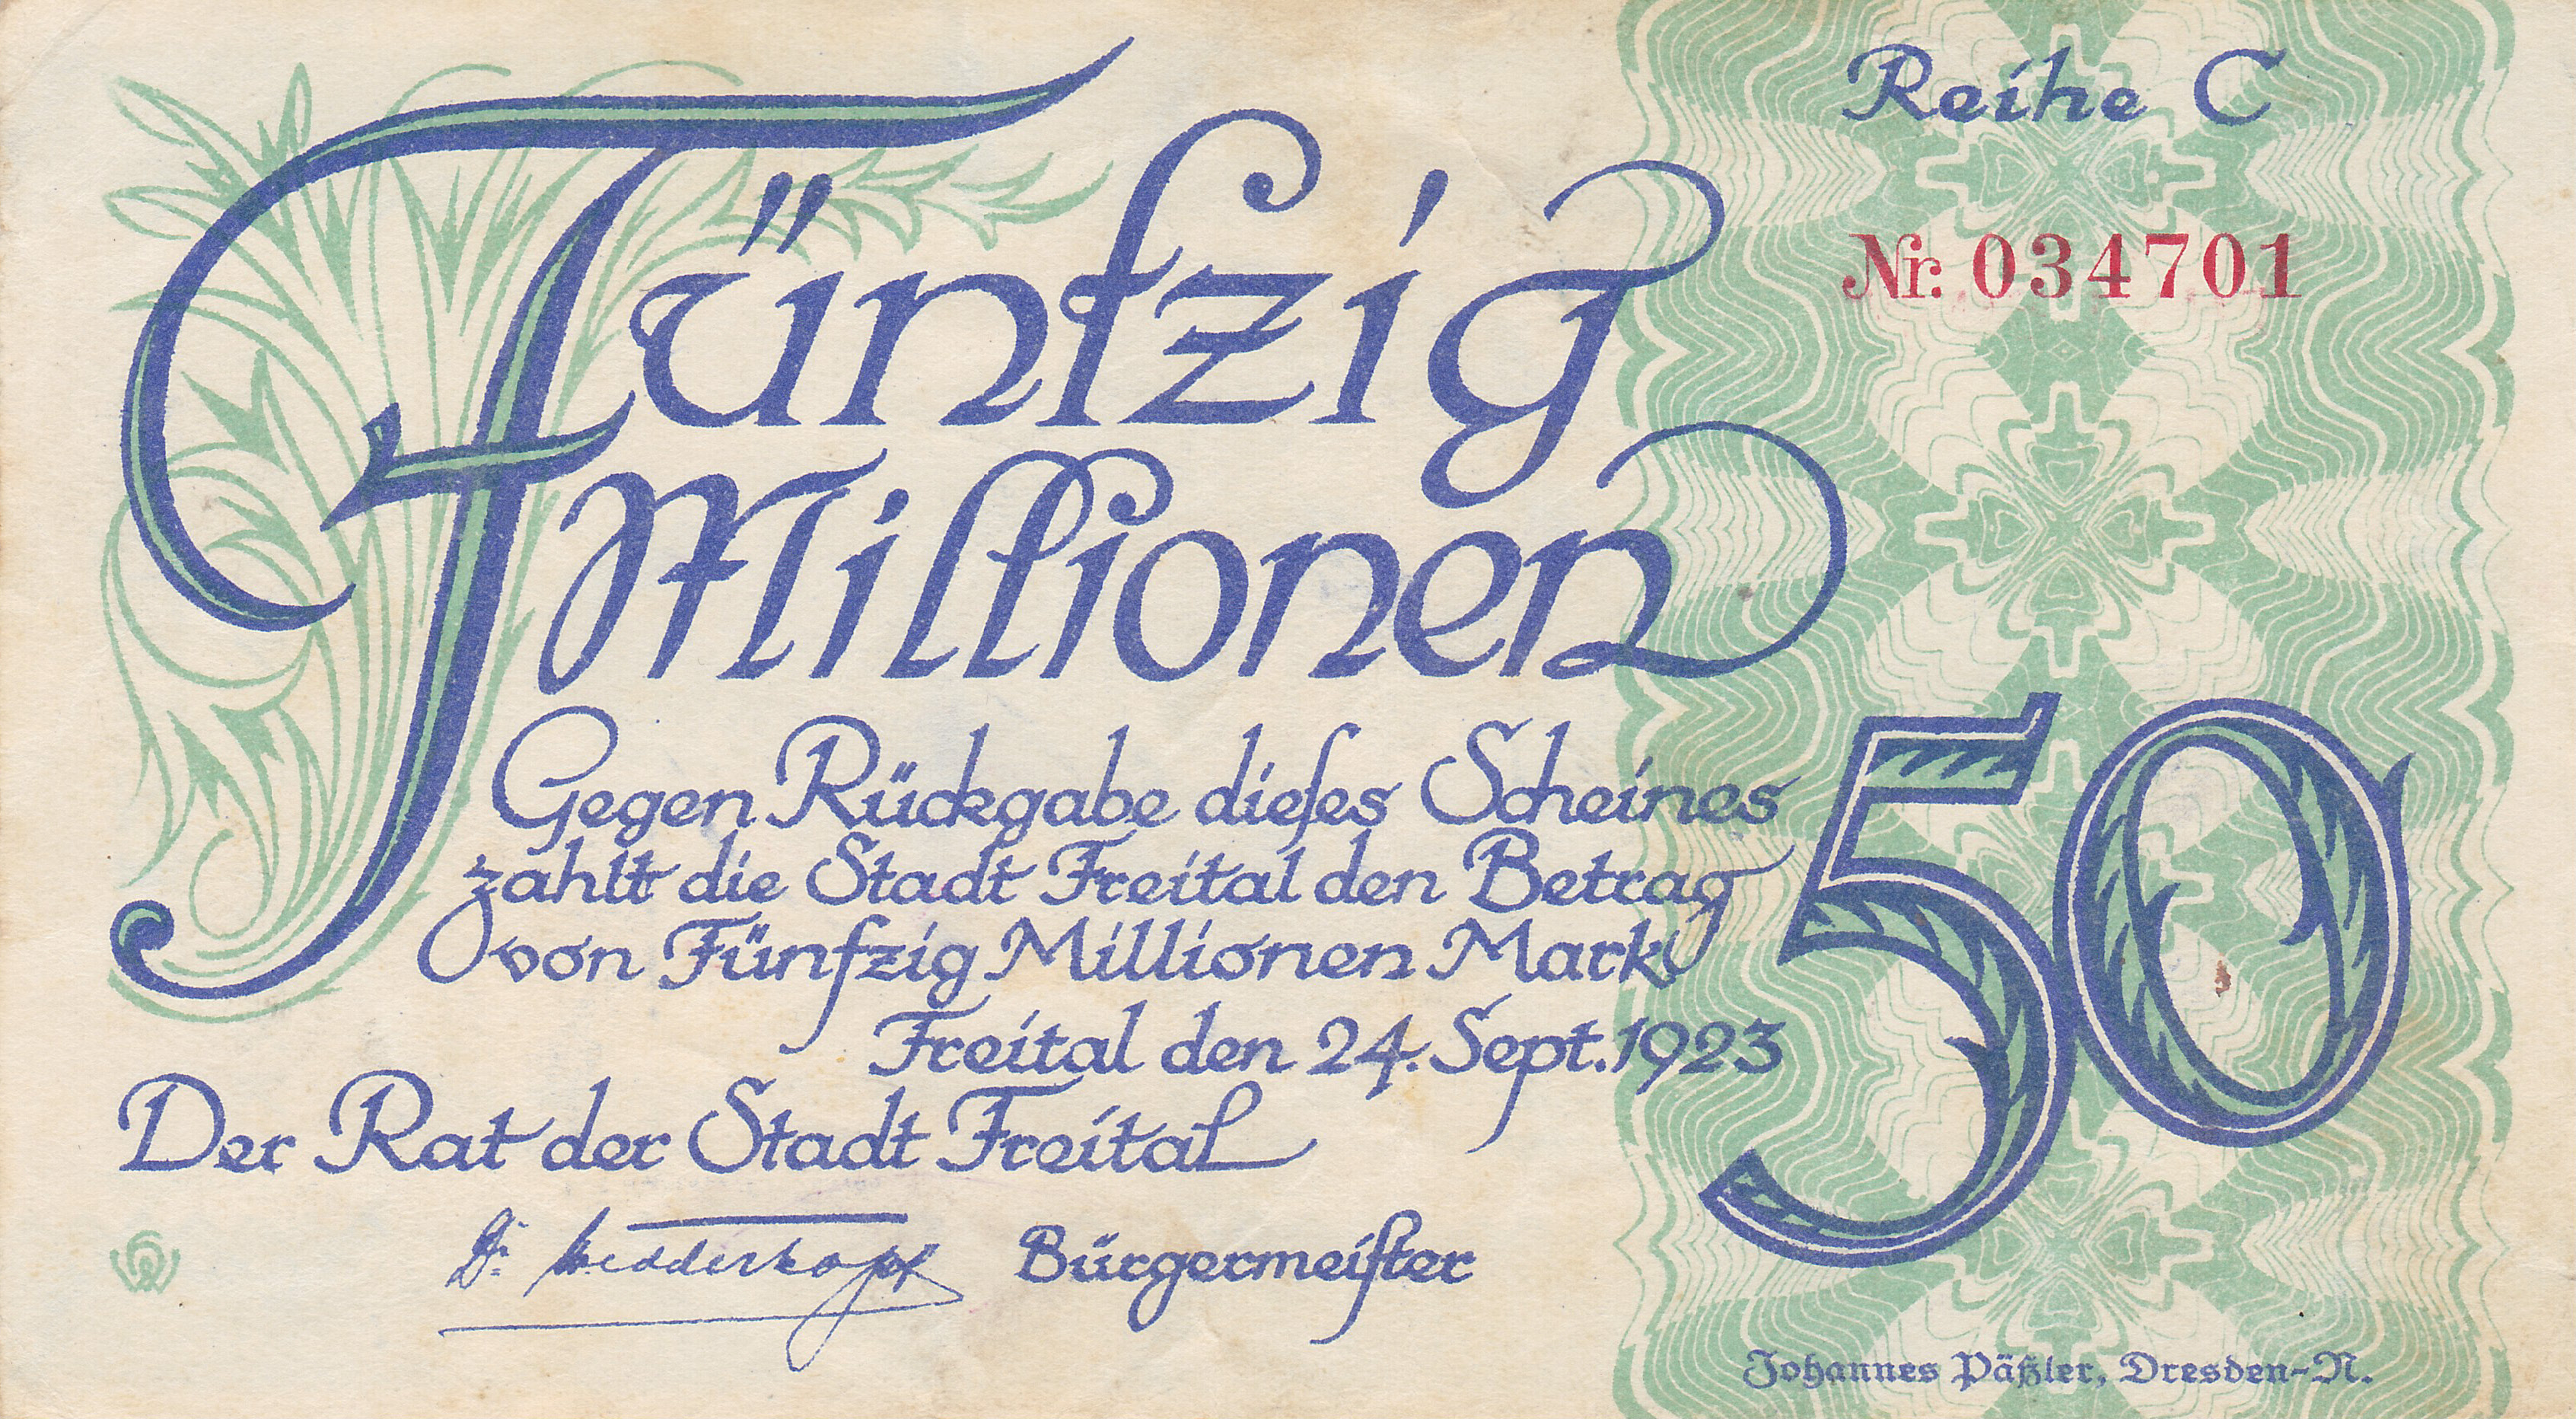 Fünfzig
Millionen
Reihe C
Nr. 034701
Gegen Rückgabe dieſes Scheines
zahlt die Stadt Freital den Betrag
von Fünfzig Millionen Mark
50
Freital den 24. Sept. 1923
Der Rat der Stadt Freital
Dr. Wedderkopf Bürgermeiſter
Johannes Päßler, Dresden-N.